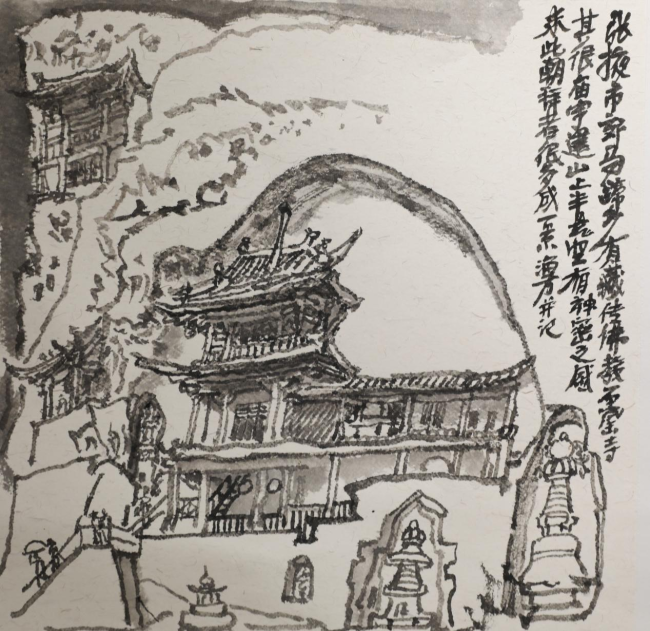 张掖市郊马蹄乡有藏传佛教寺
其很庙宇建山上半悬空有神密之感
来此朝拜者很多成一景海并记